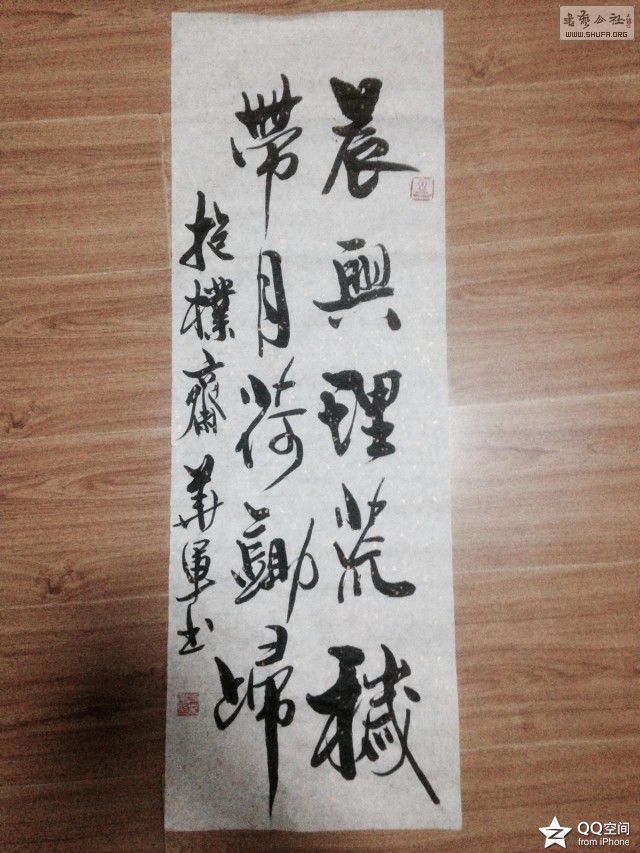 晨興理荒穢
帶月荷鋤歸
抱樸齋華軍书
书艺公社
WWW.SHUFA.ORG
QQ空间
from iPhone